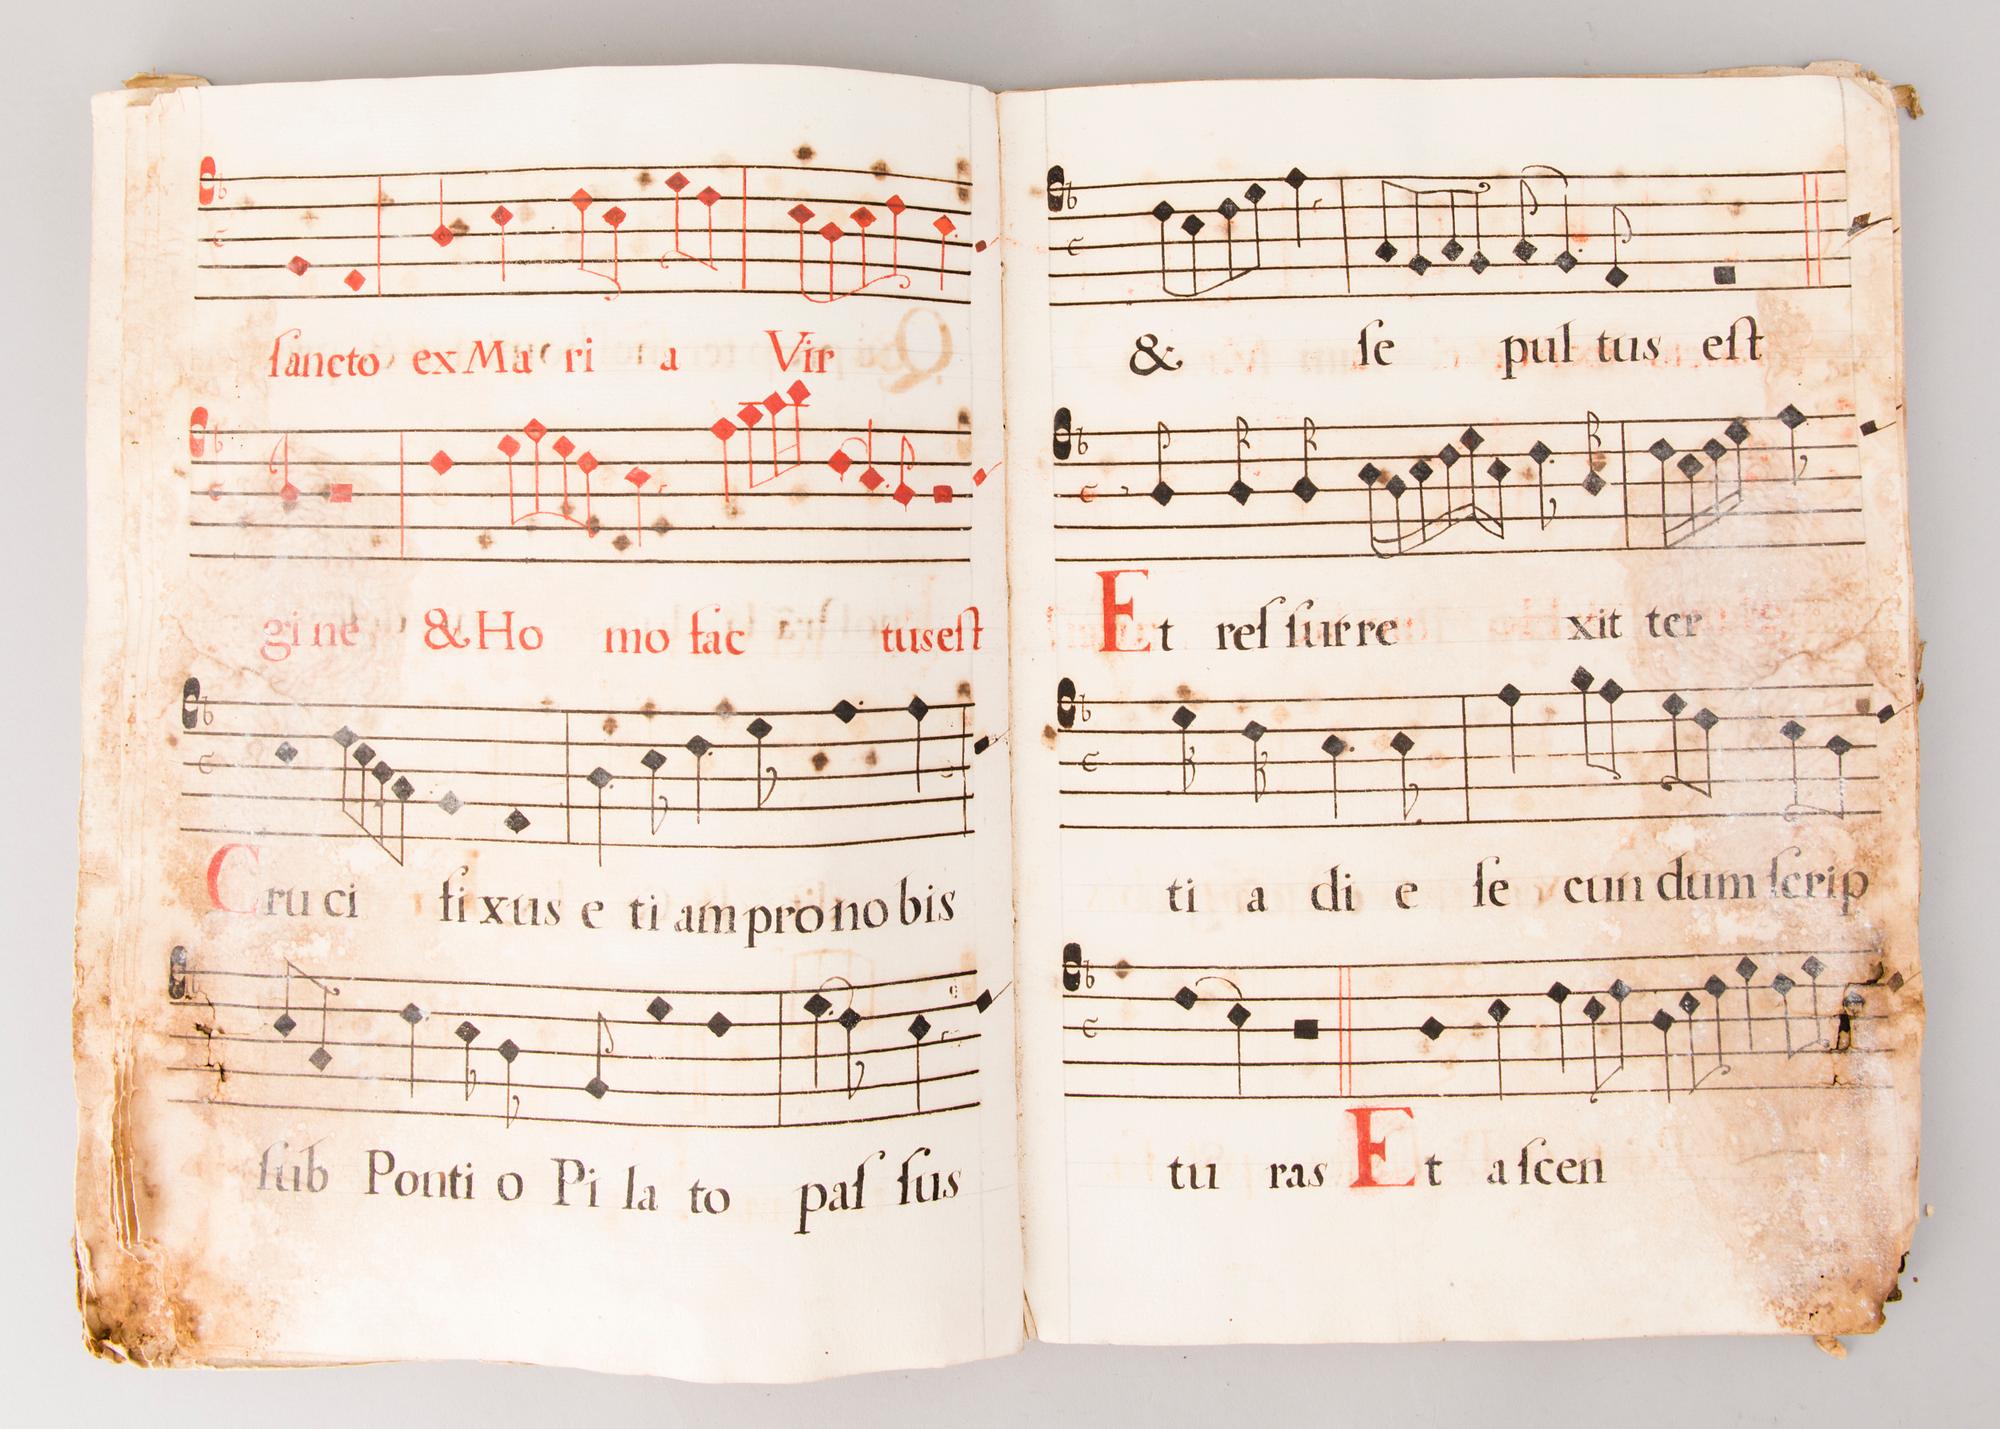 ſancto ex Ma ri a Vir
gi ne & Ho mo fac tus eſt
Cru ci fi xus e ti am pro no bis
ſub Ponti o Pi la to paſ ſus
& ſe pul tus eſt
Et reſ ſur re xit ter
ti a di e ſe cun dum ſcrip
tu ras Et a ſcen